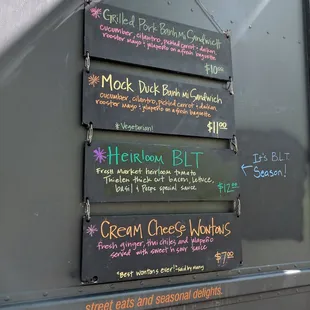 Grilled Pork Banh Mi Sandwich
cucumber, cilantro, pickled carrot + daikon,
rooster mayo + jalapeño on a fresh baguette
$10.00
Mock Duck Banh Mi Sandwich
cucumber, cilantro, pickled carrot + daikon,
rooster mayo + jalapeño on a fresh baguette
*Vegetarian!
$11.00
Heirloom BLT
Fresh Market heirloom tomato
Thielen thick cut bacon, lettuce,
basil & Peeps special sauce
$12.00
It's BLT
Season!
Cream Cheese Wontons
fresh ginger, thai chilies and jalapeño
served with sweet n sour sauce
$7.00
"Best Wontons Ever!" -said by many
street eats and seasonal delights.